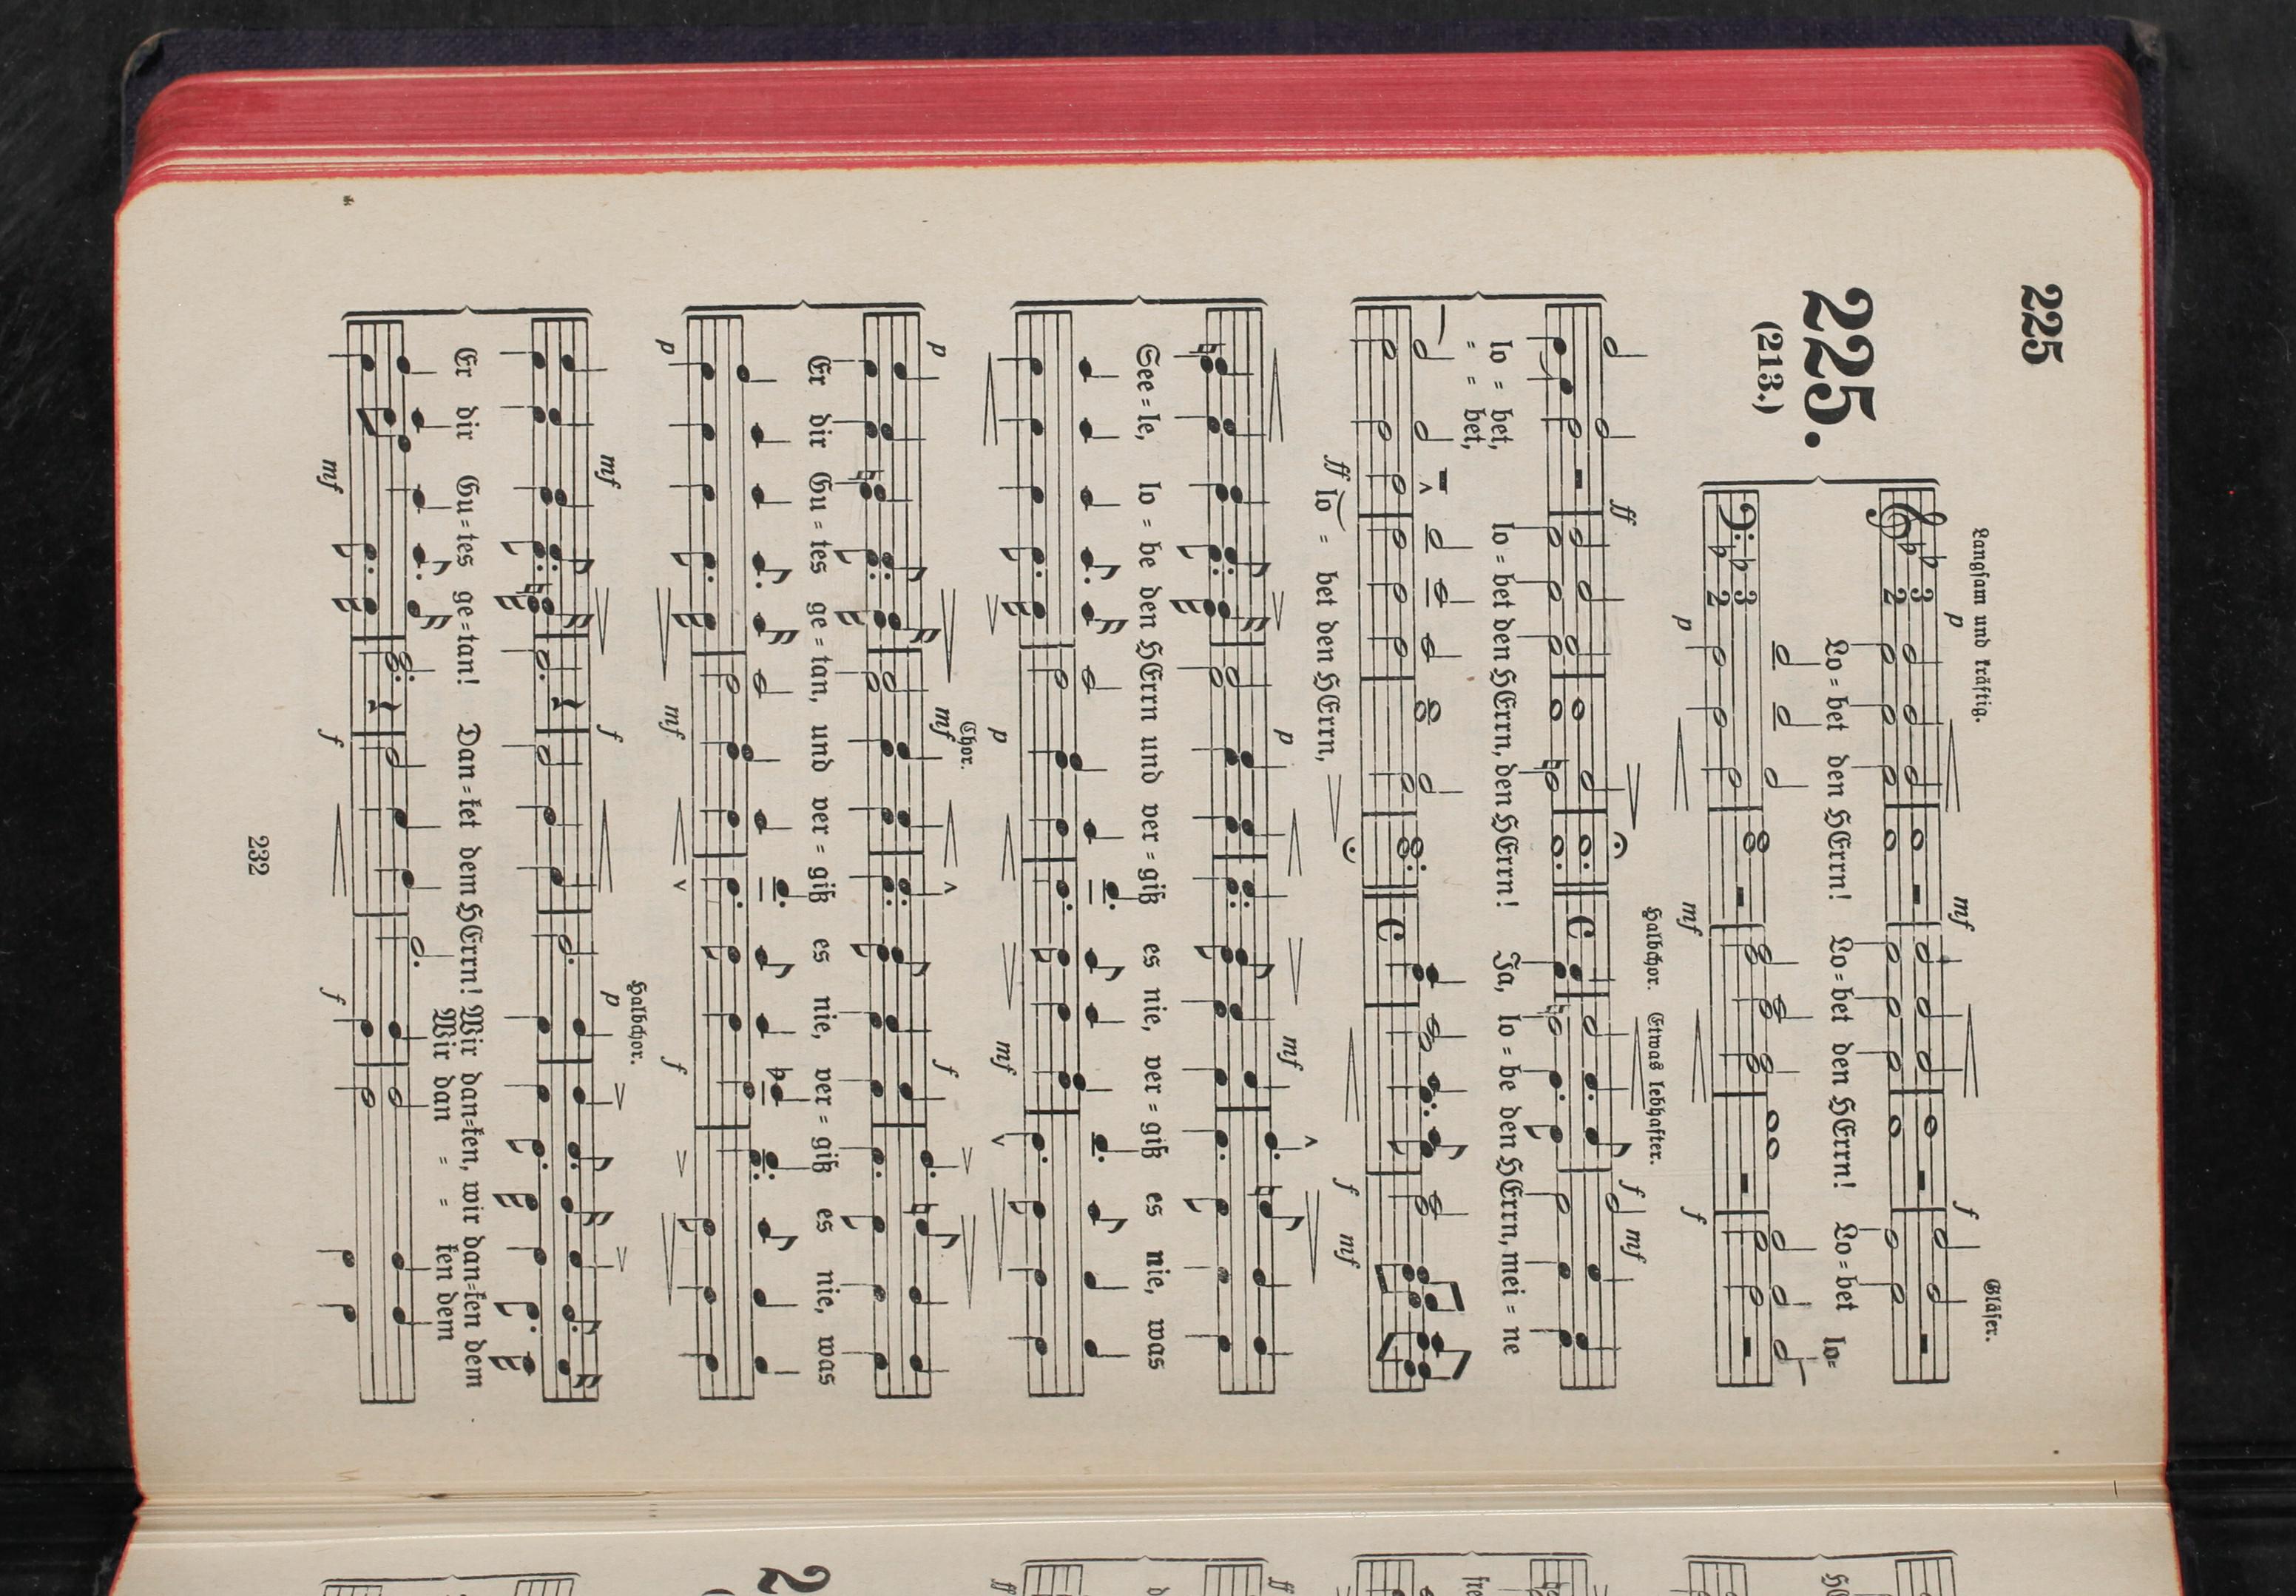 225
225.
(213.)
Langsam und kräftig.
p mf f Gläser.
3 2
Lo=bet den HErrn! Lo=bet den HErrn! Lo=bet lo=
3 2
p mf f
ff Halbchor. Etwas lebhafter. f mf
lo = bet, lo=bet den HErrn, den HErrn! Ja, lo=be den HErrn, mei = ne
= = bet,
ff lo = bet den HErrn, f mf
p mf
See=le, lo = be den HErrn und ver=giß es nie, ver=giß es nie, was
p mf
p Chor. mf f
Er dir Gu=tes ge=tan, und ver=giß es nie, ver=giß es nie, was
p mf f
mf f Halbchor. p
Er dir Gu=tes ge=tan! Dan=ket dem HErrn! Wir dan=ken, wir dan=ken dem
Wir dan = = ken dem
mf f f
232
2
ff
ff